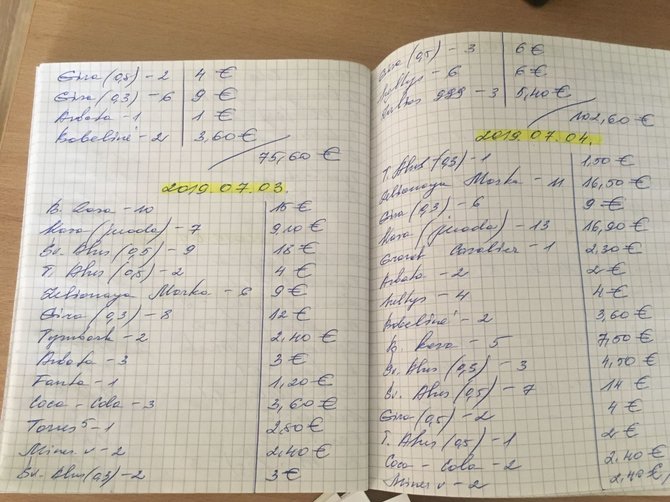 Gira (0,5) - 2 4 €
Gira (0,3) - 6 9 €
Arbata - 1 1 €
Bobeliné - 2 3,60 €
75,60 €
2019.07.03.
B. Kava - 10 15 €
Kava (juoda) - 7 9,10 €
Šv. Alus (0,5) - 9 18 €
T. Alus (0,5) - 2 4 €
Morka - 6 9 €
Gira (0,3) - 8 12 €
Tymbark - 2 2,40 €
Arbata - 3 3 €
Fanta - 1 1,20 €
Coca - Cola - 3 3,60 €
- 1 2,50 €
Miner v - 2 2,40 €
Šv. Alus (0,3) - 2 3 €
Gira (0,5) - 3 6 €
- 6 6 €
999 - 3 5,40 €
102,60 €
2019.07.04.
T. Alus (0,3) - 1 1,50 €
Morka - 11 16,50 €
Gira (0,3) - 6 9 €
Kava (juoda) - 13 16,90 €
- 1 2,30 €
Arbata - 2 2 €
- 4 4 €
Bobeliné - 2 3,60 €
B. Kava - 5 7,50 €
Šv. Alus (0,3) - 3 4,50 €
Šv. Alus (0,5) - 7 14 €
Gira (0,5) - 2 4 €
T. Alus (0,5) - 1 2 €
Coca - Cola - 2 2,40 €
Miner v - 2 2,40 €